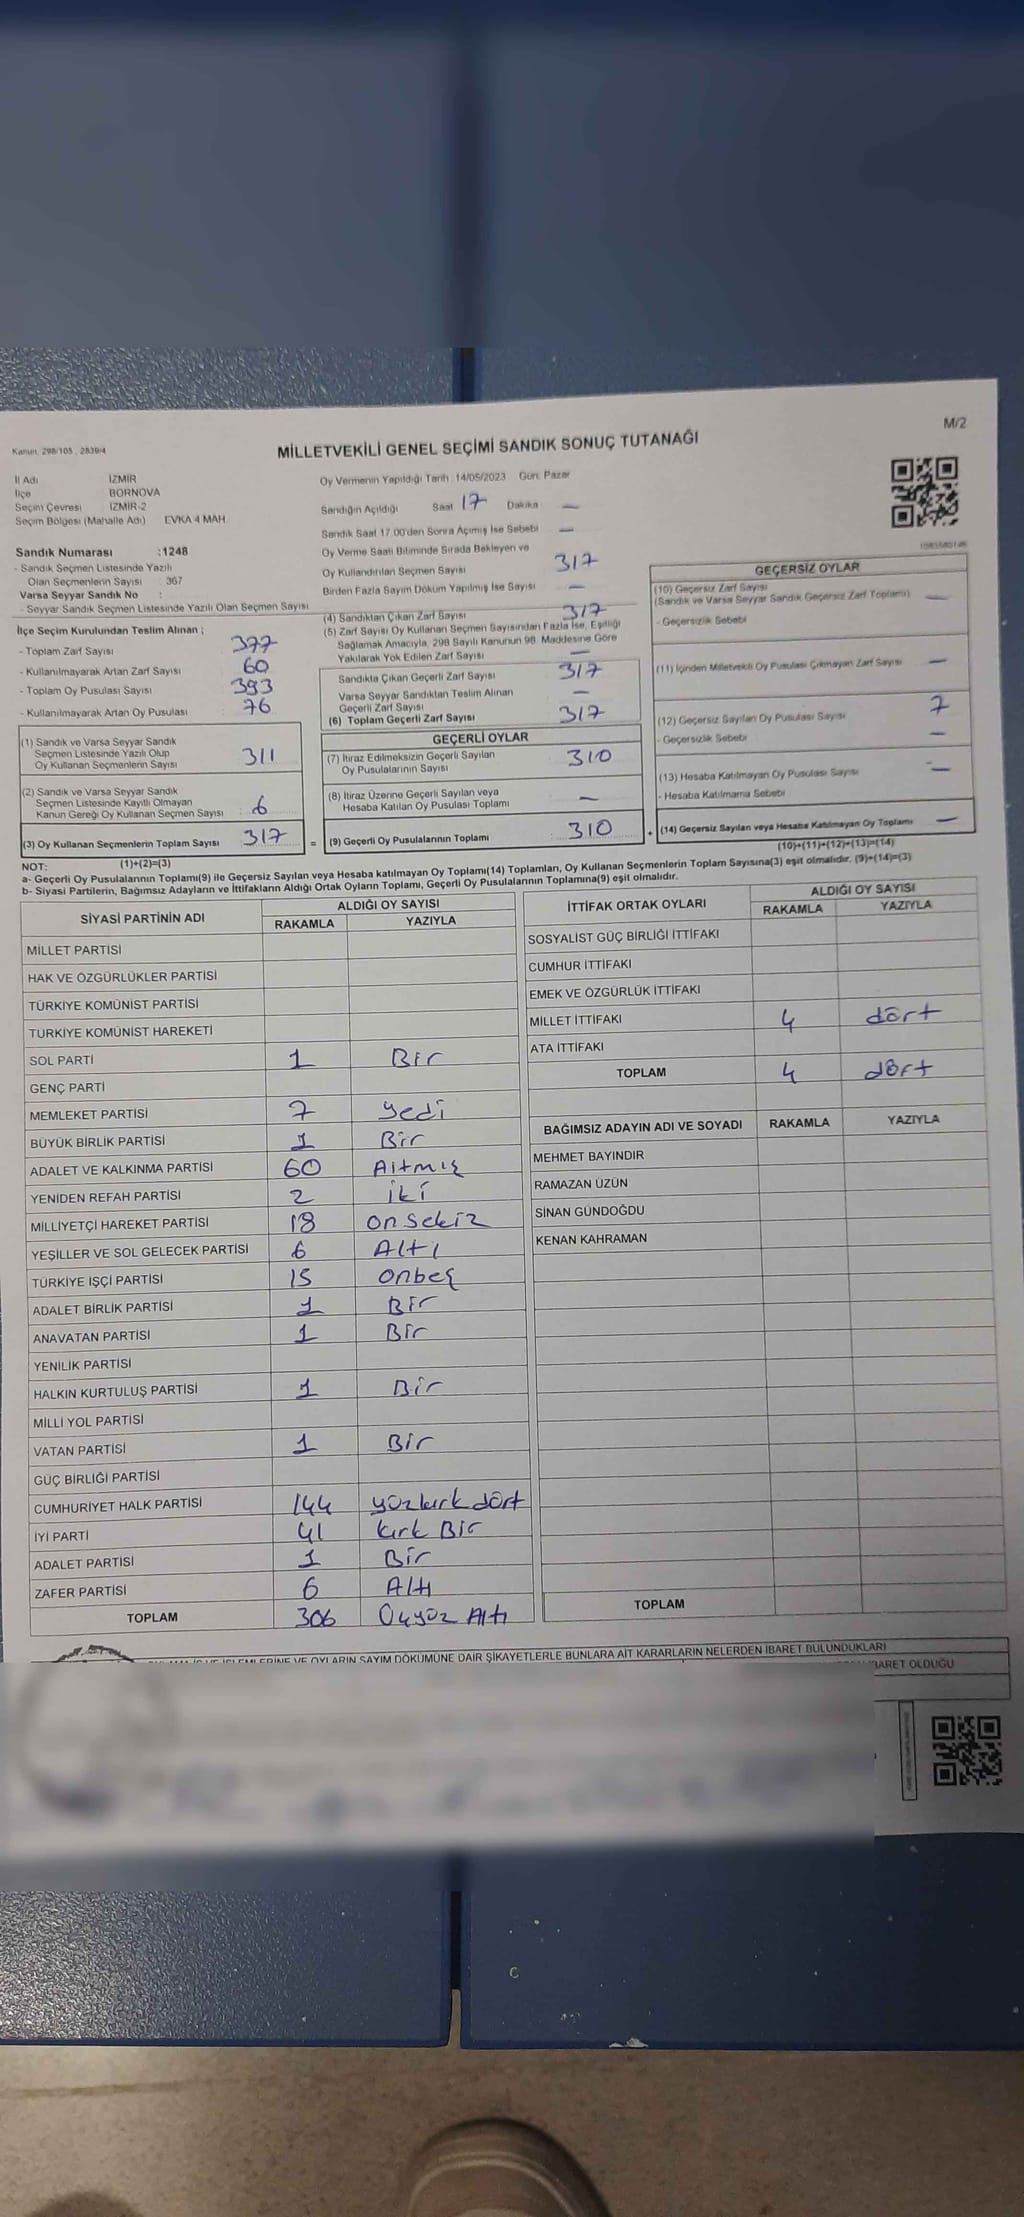 M/2
Kanun, 298/105 , 2839/4
MİLLETVEKİLİ GENEL SEÇİMİ SANDIK SONUÇ TUTANAĞI
İl Adı İZMİR
İlçe BORNOVA
Seçim Çevresi İZMİR-2
Seçim Bölgesi (Mahalle Adı) EVKA 4 MAH
Sandık Numarası :1248
- Sandık Seçmen Listesinde Yazılı
Olan Seçmenlerin Sayısı : 367
Varsa Seyyar Sandık No :
- Seyyar Sandık Seçmen Listesinde Yazılı Olan Seçmen Sayısı
İlçe Seçim Kurulundan Teslim Alınan ;
- Toplam Zarf Sayısı 377
- Kullanılmayarak Artan Zarf Sayısı 60
- Toplam Oy Pusulası Sayısı 393
- Kullanılmayarak Artan Oy Pusulası 76
(1) Sandık ve Varsa Seyyar Sandık
Seçmen Listesinde Yazılı Olup
Oy Kullanan Seçmenlerin Sayısı 311
(2) Sandık ve Varsa Seyyar Sandık
Seçmen Listesinde Kayıtlı Olmayan
Kanun Gereği Oy Kullanan Seçmen Sayısı : 6
(3) Oy Kullanan Seçmenlerin Toplam Sayısı 317 =
(1)+(2)=(3)
Oy Vermenin Yapıldığı Tarih :14/05/2023 Gün: Pazar
Sandığın Açıldığı Saat 17 Dakika —
Sandık Saat 17.00'den Sonra Açılmış İse Sebebi —
Oy Verme Saati Bitiminde Sırada Bekleyen ve
Oy Kullandırılan Seçmen Sayısı 317
Birden Fazla Sayım Döküm Yapılmış İse Sayısı —
(4) Sandıktan Çıkan Zarf Sayısı 317
(5) Zarf Sayısı Oy Kullanan Seçmen Sayısından Fazla İse, Eşitliği
Sağlamak Amacıyla, 298 Sayılı Kanunun 98. Maddesine Göre
Yakılarak Yok Edilen Zarf Sayısı —
Sandıkta Çıkan Geçerli Zarf Sayısı 317
Varsa Seyyar Sandıktan Teslim Alınan
Geçerli Zarf Sayısı —
(6) Toplam Geçerli Zarf Sayısı 317
GEÇERLİ OYLAR
(7) İtiraz Edilmeksizin Geçerli Sayılan
Oy Pusulalarının Sayısı 310
(8) İtiraz Üzerine Geçerli Sayılan veya
Hesaba Katılan Oy Pusulası Toplamı —
(9) Geçerli Oy Pusulalarının Toplamı 310 +
GEÇERSİZ OYLAR
(10) Geçersiz Zarf Sayısı
(Sandık ve Varsa Seyyar Sandık Geçersiz Zarf Toplamı) —
- Geçersizlik Sebebi
(11) İçinden Milletvekili Oy Pusulası Çıkmayan Zarf Sayısı —
(12) Geçersiz Sayılan Oy Pusulası Sayısı 7
- Geçersizlik Sebebi —
(13) Hesaba Katılmayan Oy Pusulası Sayısı —
- Hesaba Katılmama Sebebi
(14) Geçersiz Sayılan veya Hesaba Katılmayan Oy Toplamı —
(10)+(11)+(12)+(13)=(14)
NOT:
a- Geçerli Oy Pusulalarının Toplamı(9) ile Geçersiz Sayılan veya Hesaba katılmayan Oy Toplamı(14) Toplamları, Oy Kullanan Seçmenlerin Toplam Sayısına(3) eşit olmalıdır. (9)+(14)=(3)
b- Siyasi Partilerin, Bağımsız Adayların ve İttifakların Aldığı Ortak Oyların Toplamı, Geçerli Oy Pusulalarının Toplamına(9) eşit olmalıdır.
SİYASİ PARTİNİN ADI ALDIĞI OY SAYISI
RAKAMLA YAZIYLA
MİLLET PARTİSİ
HAK VE ÖZGÜRLÜKLER PARTİSİ
TÜRKİYE KOMÜNİST PARTİSİ
TÜRKİYE KOMÜNİST HAREKETİ
SOL PARTİ 1 Bir
GENÇ PARTİ
MEMLEKET PARTİSİ 7 yedi
BÜYÜK BİRLİK PARTİSİ 1 Bir
ADALET VE KALKINMA PARTİSİ 60 Altmış
YENİDEN REFAH PARTİSİ 2 iki
MİLLİYETÇİ HAREKET PARTİSİ 18 onsekiz
YEŞİLLER VE SOL GELECEK PARTİSİ 6 Altı
TÜRKİYE İŞÇİ PARTİSİ 15 onbeş
ADALET BİRLİK PARTİSİ 1 Bir
ANAVATAN PARTİSİ 1 Bir
YENİLİK PARTİSİ
HALKIN KURTULUŞ PARTİSİ 1 Bir
MİLLİ YOL PARTİSİ
VATAN PARTİSİ 1 Bir
GÜÇ BİRLİĞİ PARTİSİ
CUMHURİYET HALK PARTİSİ 144 yüzkırkdört
İYİ PARTİ 41 kırk Bir
ADALET PARTİSİ 1 Bir
ZAFER PARTİSİ 6 Altı
TOPLAM 306 Üçyüz Altı
İTTİFAK ORTAK OYLARI ALDIĞI OY SAYISI
RAKAMLA YAZIYLA
SOSYALİST GÜÇ BİRLİĞİ İTTİFAKI
CUMHUR İTTİFAKI
EMEK VE ÖZGÜRLÜK İTTİFAKI
MİLLET İTTİFAKI 4 dört
ATA İTTİFAKI
TOPLAM 4 dört
BAĞIMSIZ ADAYIN ADI VE SOYADI RAKAMLA YAZIYLA
MEHMET BAYINDIR
RAMAZAN ÜZÜN
SİNAN GÜNDOĞDU
KENAN KAHRAMAN
TOPLAM
VE OYLARIN SAYIM DÖKÜMÜNE DAİR ŞİKAYETLERLE BUNLARA AİT KARARLARIN NELERDEN İBARET BULUNDUKLARI
İBARET OLDUĞU